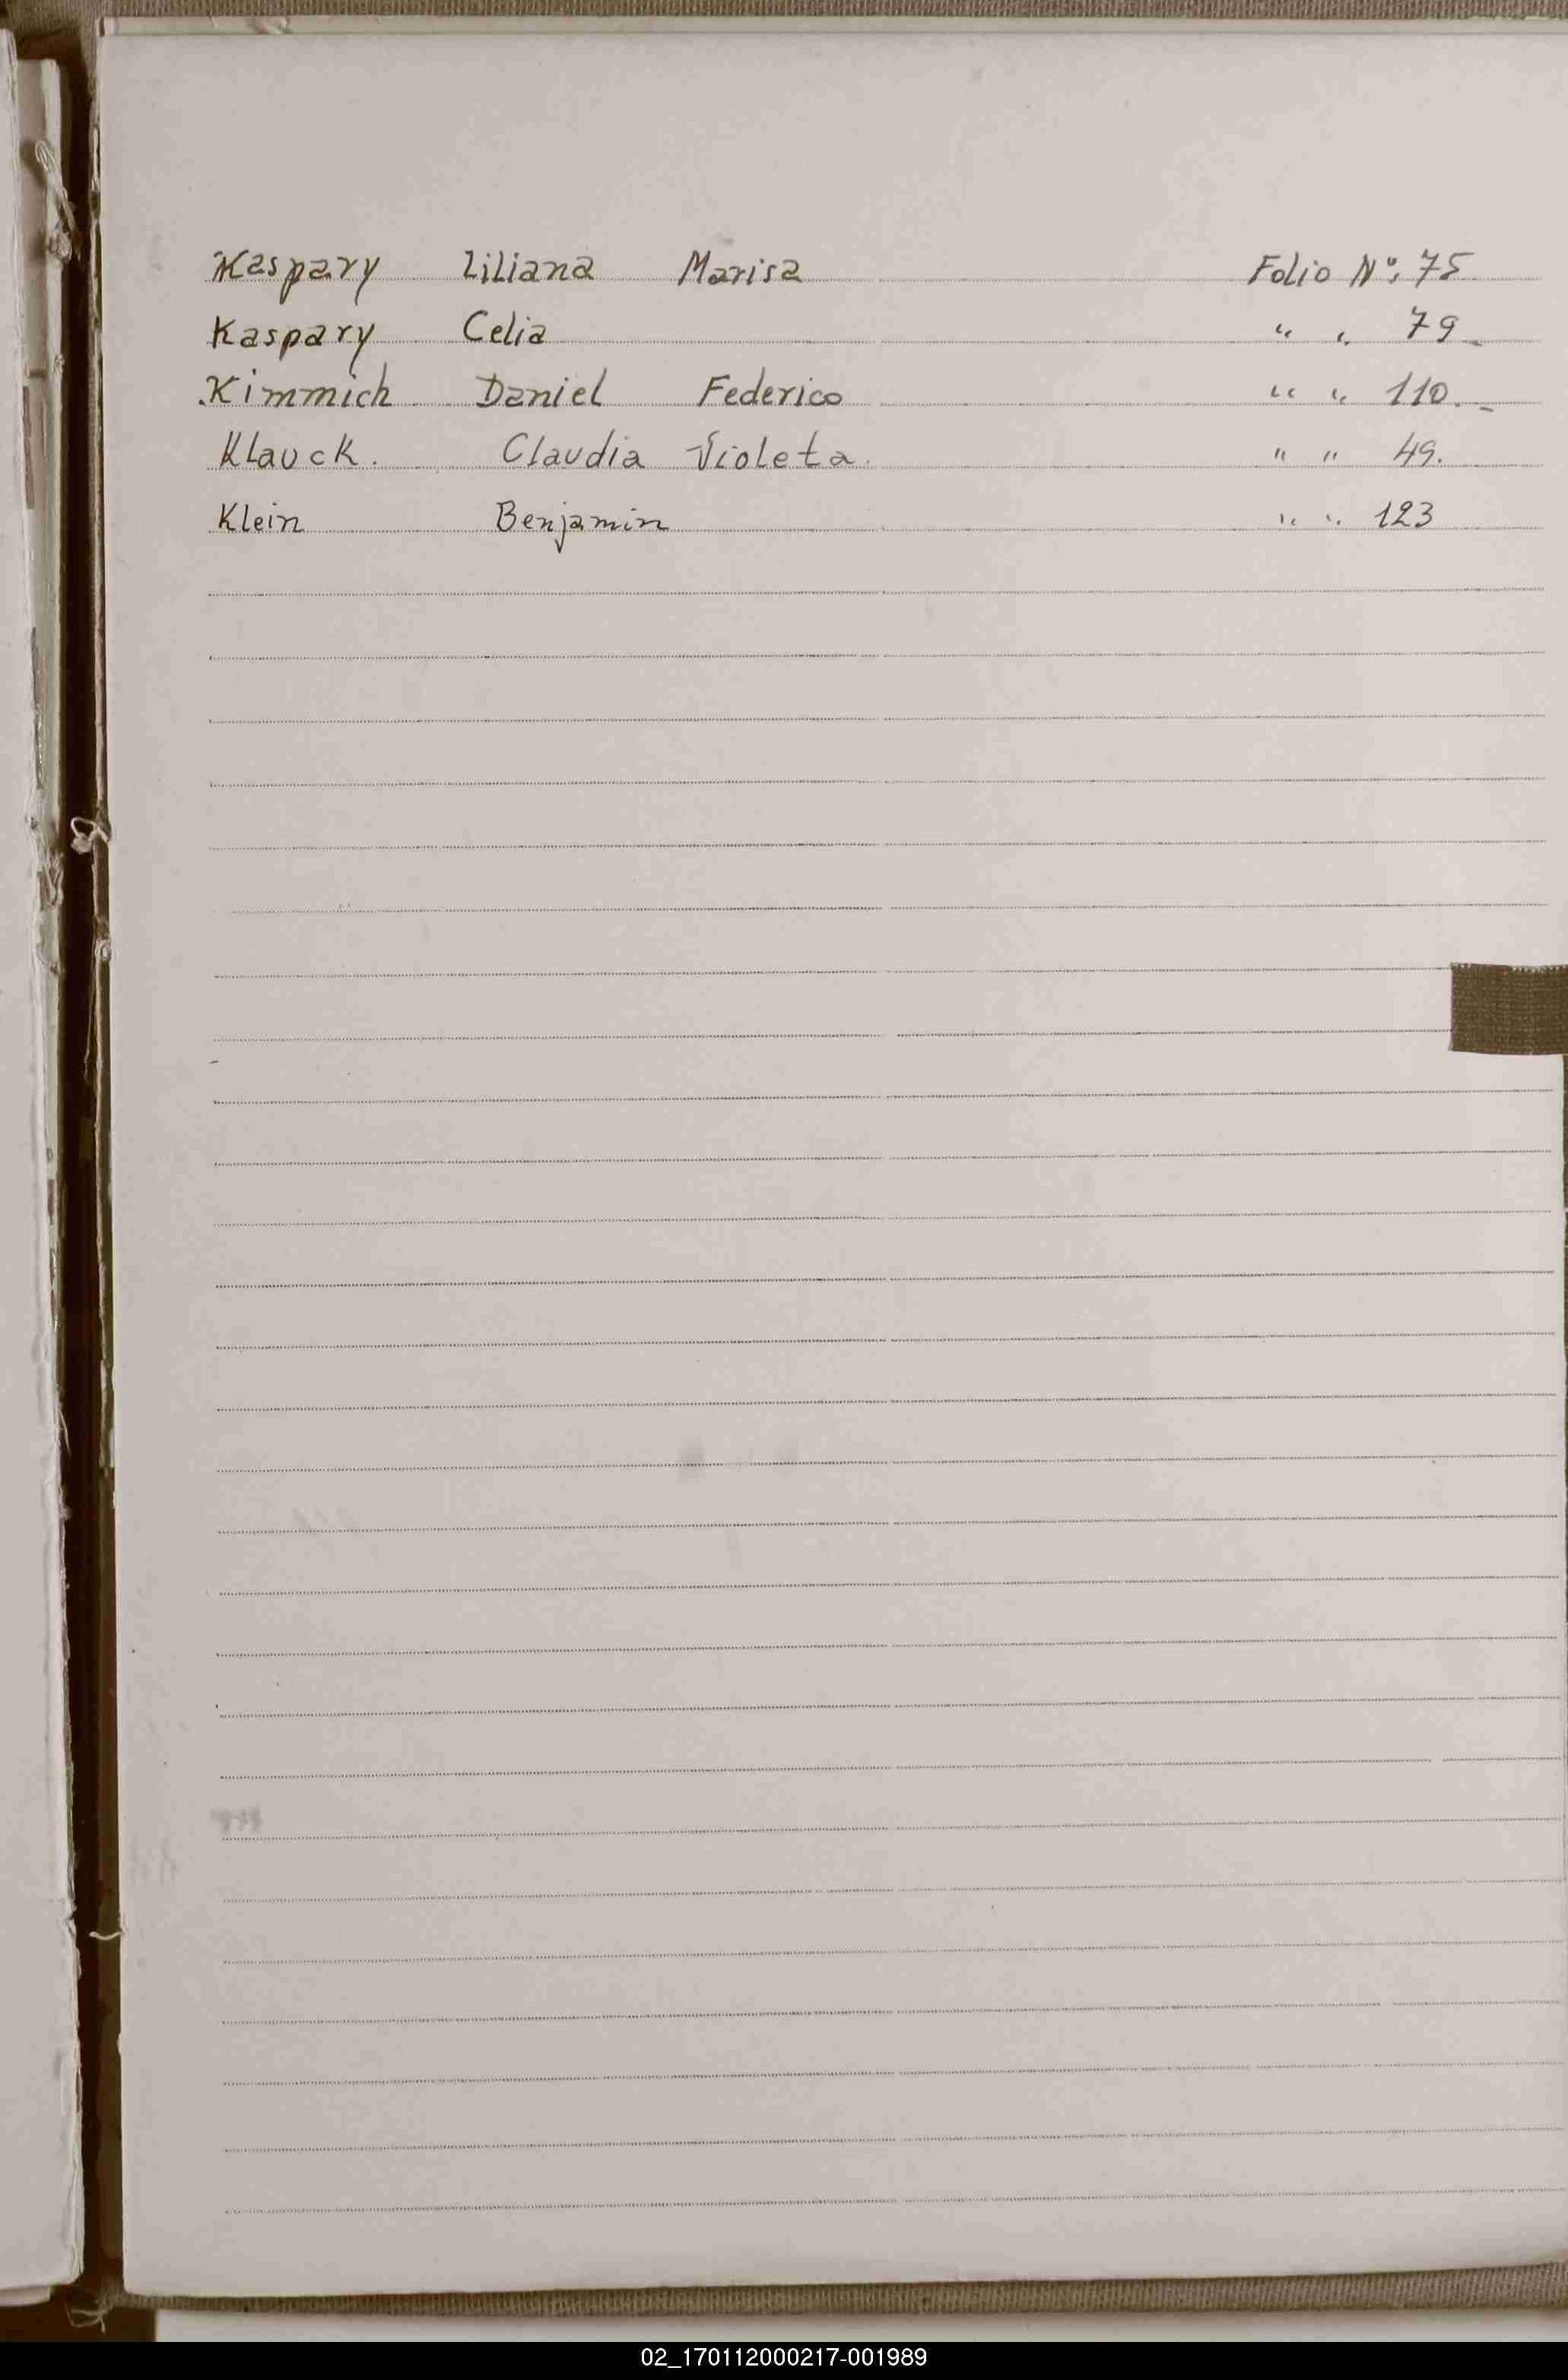 Kaspary Liliana Marisa Folio Nº: 75
Kaspary Celia " " 79
Kimmich Daniel Federico " " 110.-
Klauck. Claudia Violeta. " " 49.
Klein Benjamin " " 123
02_170112000217-001989